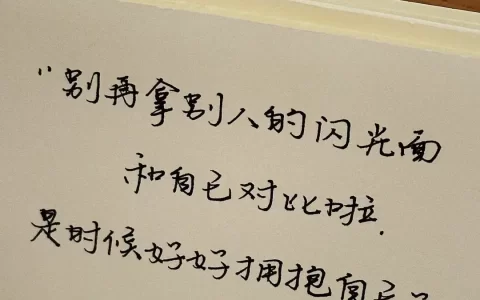 “别再拿别人的闪光面
和自己对比啦.
是时候好好拥抱自己